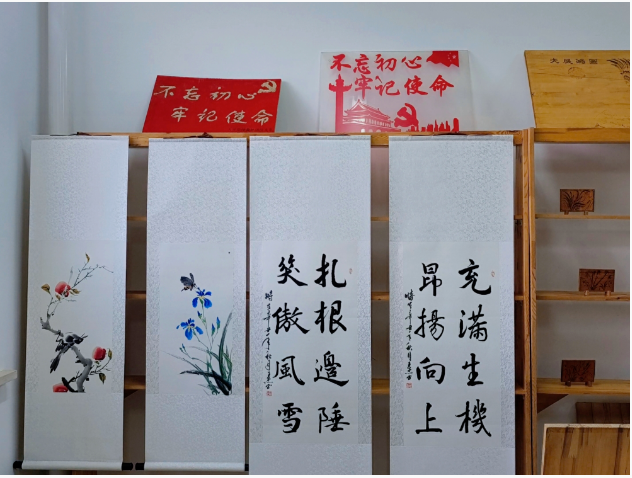 不忘初心
牢记使命
不忘初心
牢记使命
大展鸿图
扎根邊陲
笑傲風雪
充滿生機
昂揚向上